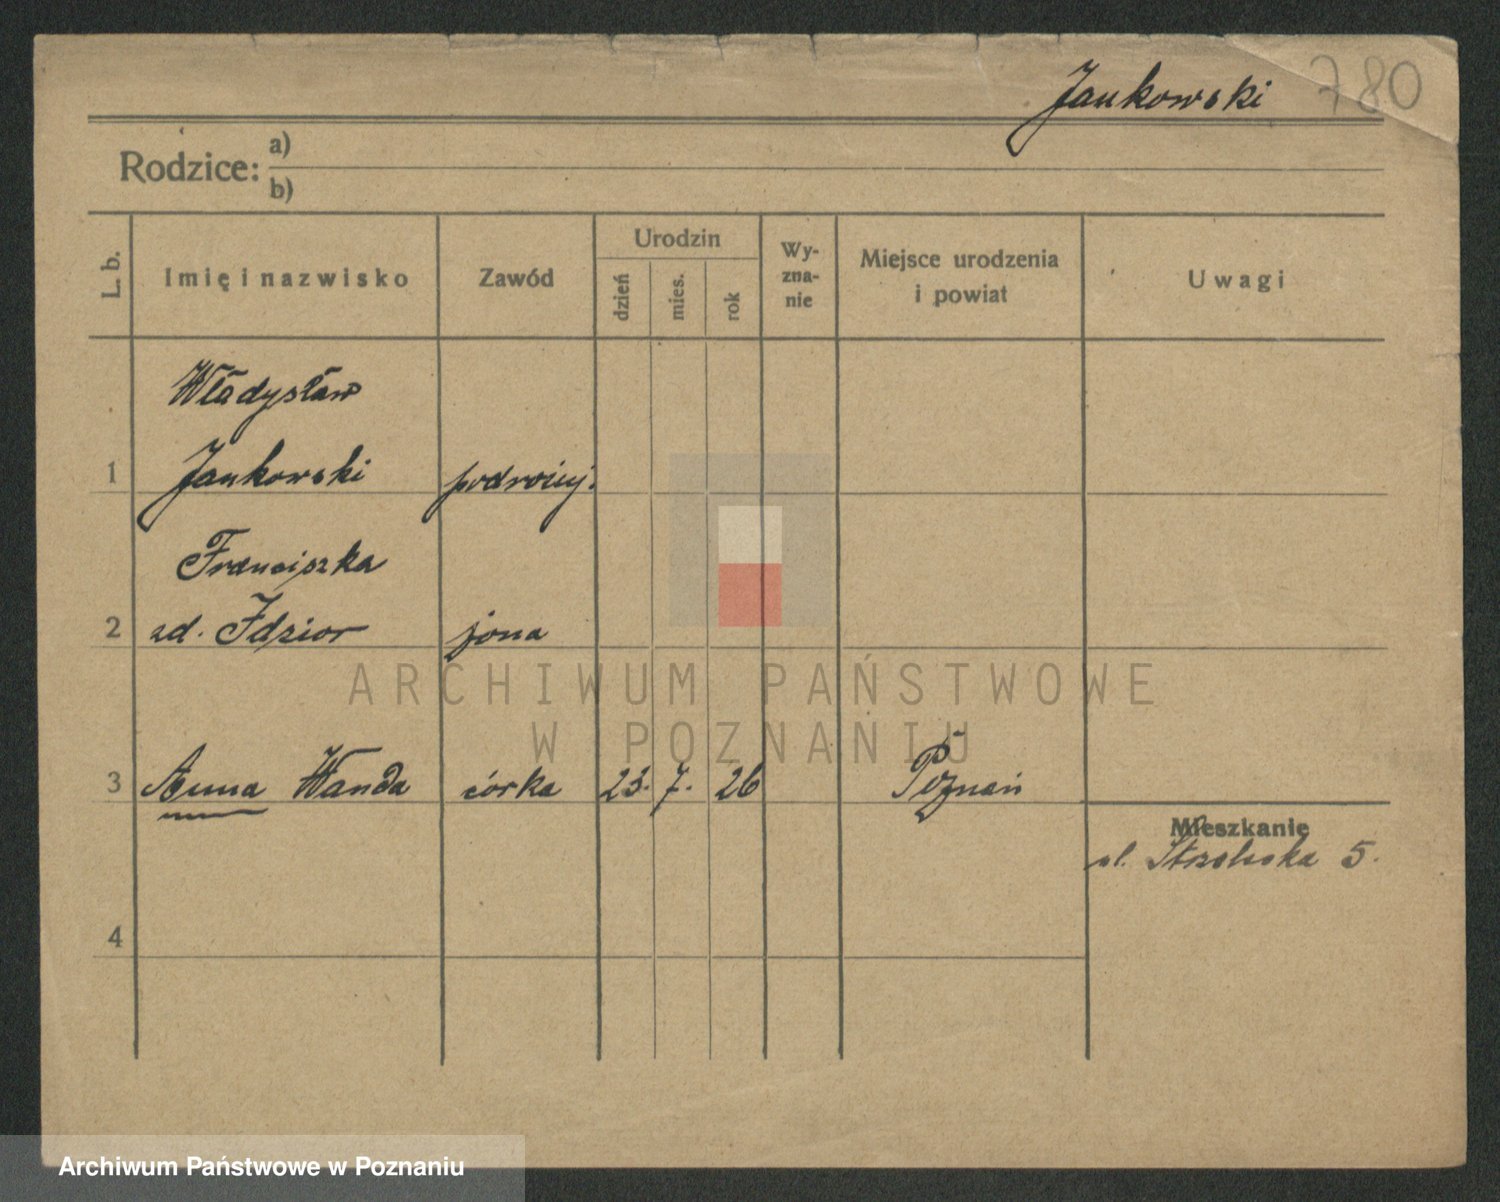 Jankowski 780
Rodzice: a)
b)
L. b.
Imię i nazwisko
Zawód
Urodzin
dzień
mies.
rok
Wy-
zna-
nie
Miejsce urodzenia
i powiat
Uwagi
Władysław
1 Jankowski podrożuj.
Franciszka
2 zd. Idzior żona
3 Anna Wanda córka 23. 7. 26 Poznań
Mieszkanie
ul. 5.
4
ARCHIWUM PAŃSTWOWE
W POZNANIU
Archiwum Państwowe w Poznaniu